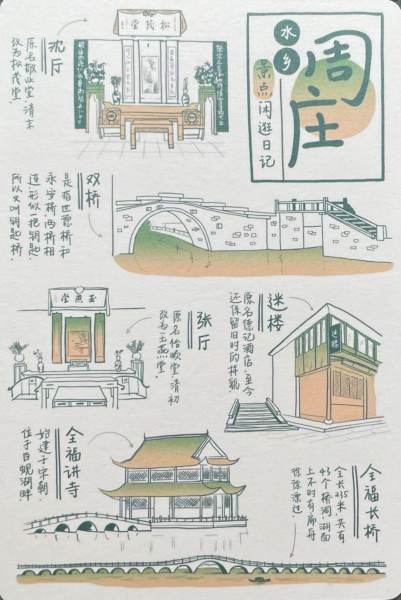 水乡
周庄
景点闲逛日记
沈厅
原名敬业堂，清末
改为松茂堂
松茂堂
双桥
是有世德桥和
永安桥两桥相
连，形似一把钥匙，
所以又叫钥匙桥.
张厅
原名怡顺堂，清初
改为玉燕堂.
玉燕堂
迷楼
原名德记酒店，至今
还保留旧时的样貌
迷楼
全福讲寺
始建于宋朝，
位于白蚬湖畔.
全福长桥
全长235米，共有
43个桥洞，湖面
上不时有扁舟
徐徐漂过